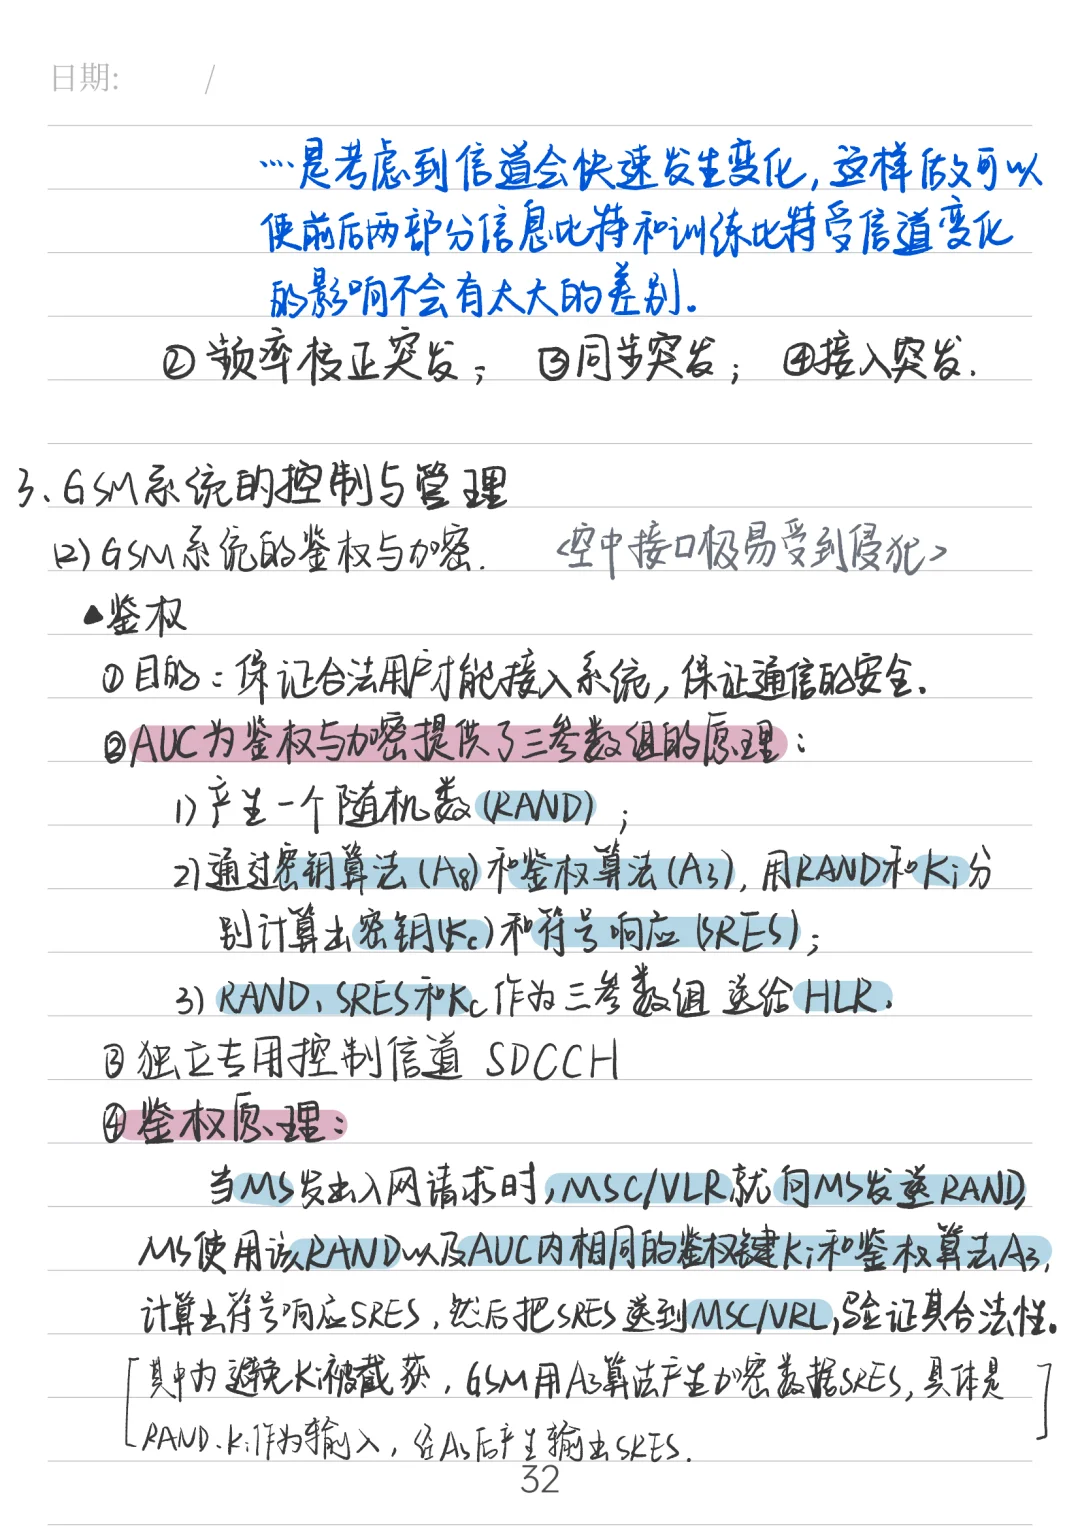 日期: /
…是考虑到信道会快速发生变化,这样做又可以
使前后两部分信息比特和训练比特受信道变化
的影响不会有太大的差别.
②频率校正突发; ③同步突发; ④接入突发.
3、GSM系统的控制与管理
(2)GSM系统的鉴权与加密. <空中接口极易受到侵犯>
▲鉴权
①目的:保证合法用户才能接入系统,保证通信的安全.
②AUC为鉴权与加密提供了三参数组的原理:
1)产生一个随机数(RAND);
2)通过密钥算法(A8)和鉴权算法(A3),用RAND和Ki分
别计算出密钥(Kc)和符号响应(SRES);
3)RAND、SRES和Kc作为三参数组送给HLR.
③独立专用控制信道 SDCCH
④鉴权原理:
当MS发出入网请求时,MSC/VLR就向MS发送RAND,
MS使用该RAND以及AUC内相同的鉴权键Ki和鉴权算法A3,
计算出符号响应SRES,然后把SRES送到MSC/VRL,验证其合法性。
[其中为避免Ki被截获,GSM用A3算法产生加密数据SRES,具体是
RAND、Ki作为输入,经A3后产生输出SRES.]
32